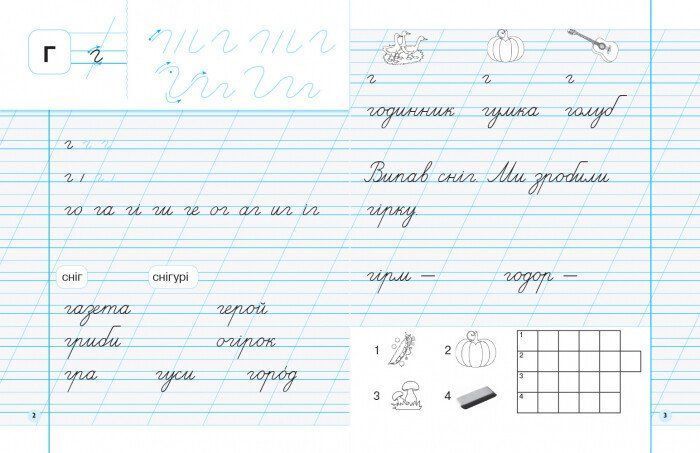 Г г
г г г
г г г
го га гі ги ге ог аг иг іг
сніг снігурі
газета герой
гриби огірок
гра гуси горо́д
2
г г г
годинник гумка голуб
Випав сніг. Ми зробили
гірку.
гірм — годор —
1 2
3 4
1
2
3
4
3